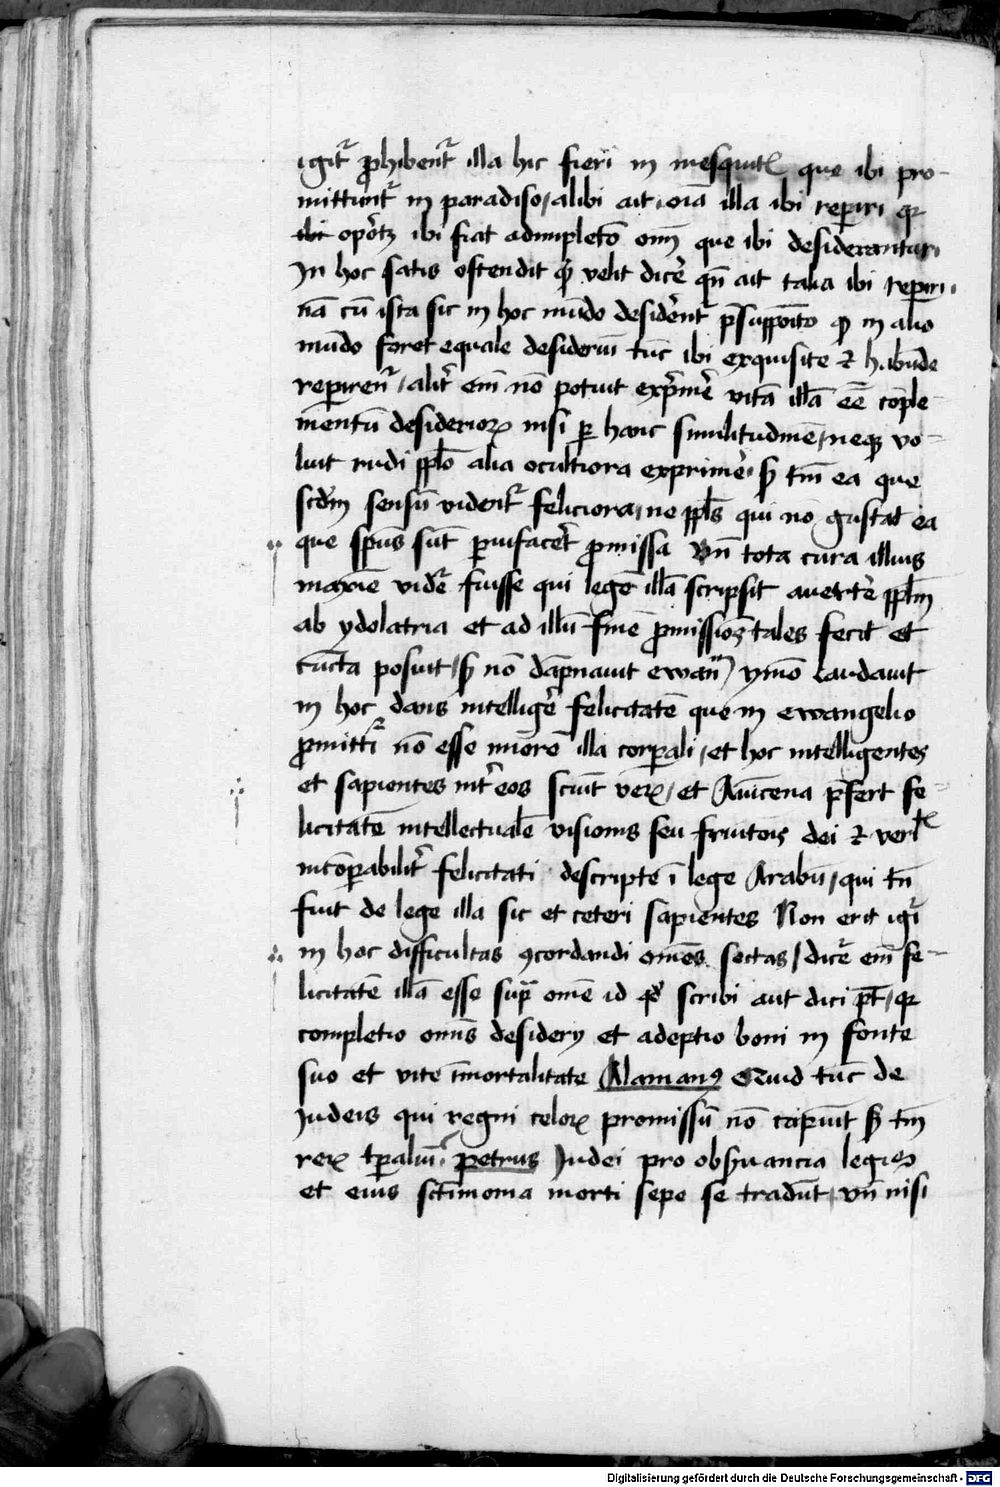 igit᷑ ꝓhibent᷑ illa hic fieri in mesquit᷑ que ibi pro-
mittūnt᷑ in paradiso / alibi ait oīa illa ibi reperiri qr
ibi oport̉ꝫ ibi fiat adimpletō oīm que ibi desiderantur
In hoc satis ostendit qͥd velit dic̉e qn̄ ait talia ibi reperiri
nā cū ista sic in hoc mūdo desider̉ent᷑ p̄supposito ꝙ in alio
mūdo foret equale desideriū tūc ibi exquisite ⁊ habūde
reperirent᷑ / alit̉ em̄ nō potuit exprim̉e vitā illā eē cōple
mentū desiderioꝝ nisi ꝑ hanc similitudinē / neqꝫ vo-
luit rudi pplō alia ocultiora exprimẻ sꝫ tm̄ ea que
scd̄m sensū vident᷑ feliciora / ne ppl̄s qui nō gustat ea
que spūs sūt ꝑuifacer̉et ꝓmissa Vn̄ tota cura illius
maxīe videt᷑ fuisse qui legē illā scripsit auert̉e pplm̄
ab ydolatria et ad illū finē ꝓmissiōēs tales fecit et
cūcta posuit / sꝫ nō dāpnauit ewanᵐ / ymō laudauit
in hoc dans intellig̉e felicitatē que in ewangelio
ꝓmittit᷑ nō esse minorē illa corꝑali / et hoc intelligentes
et sapientes int̉ eos sciūt veꝝ / et Auicena p̄fert fe-
licitatē intellectualē visionis seu fruitōis dei ⁊ veritᵗⁱˢ
incōparabilit̉ felicitati descripte ī lege Arabū / qui tn̄
fuit de lege illa sic et ceteri sapientes Non erit igᷣ
in hoc difficultas ꝯcordandi omēs sectas / dicet᷑ em̄ fe-
licitatē illā esse supᷓ omē id qd̄ scribi aut dici pt̄ / qr
completio omīs desiderÿ et adeptio boni in fonte
suo et vite īmortalitate Alamanꝰ Quid tūc de
Iudeis qui regni celoꝝ promissū nō capiūt sꝫ tm̄
reꝝ tꝑaliū petrus Iudei pro obsꝰuancia legis
et eius sctīmonia morti sepe se tradūt / vn̄ nisi
Digitalisierung gefördert durch die Deutsche Forschungsgemeinschaft - DFG